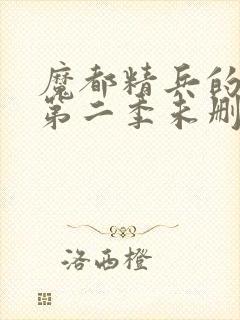 魔都精兵的
第二季未删
洛西橙